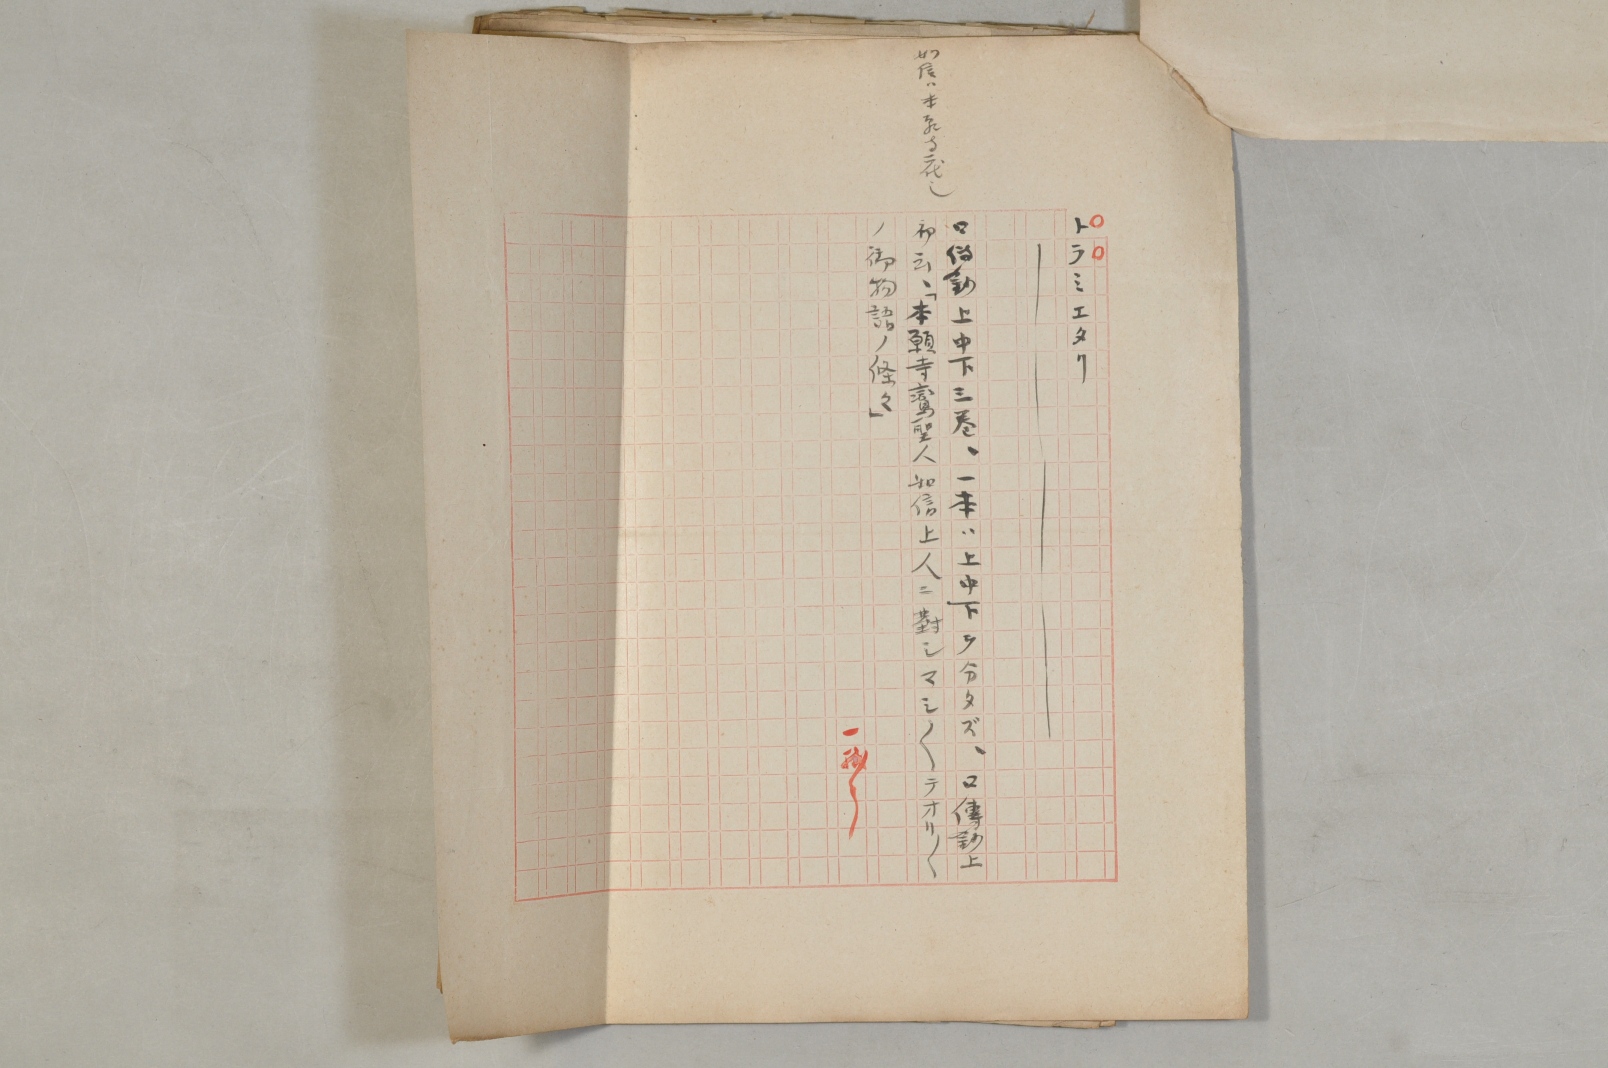 トラミエタリ
口傳鈔上中下三巻、一本ハ上中下ヲ分タズ、口傳鈔上
初云、「本願寺鸞聖人如信上人ニ對シマシ〱テオリ〱
ノ御物語ノ條々」
如信ハ本